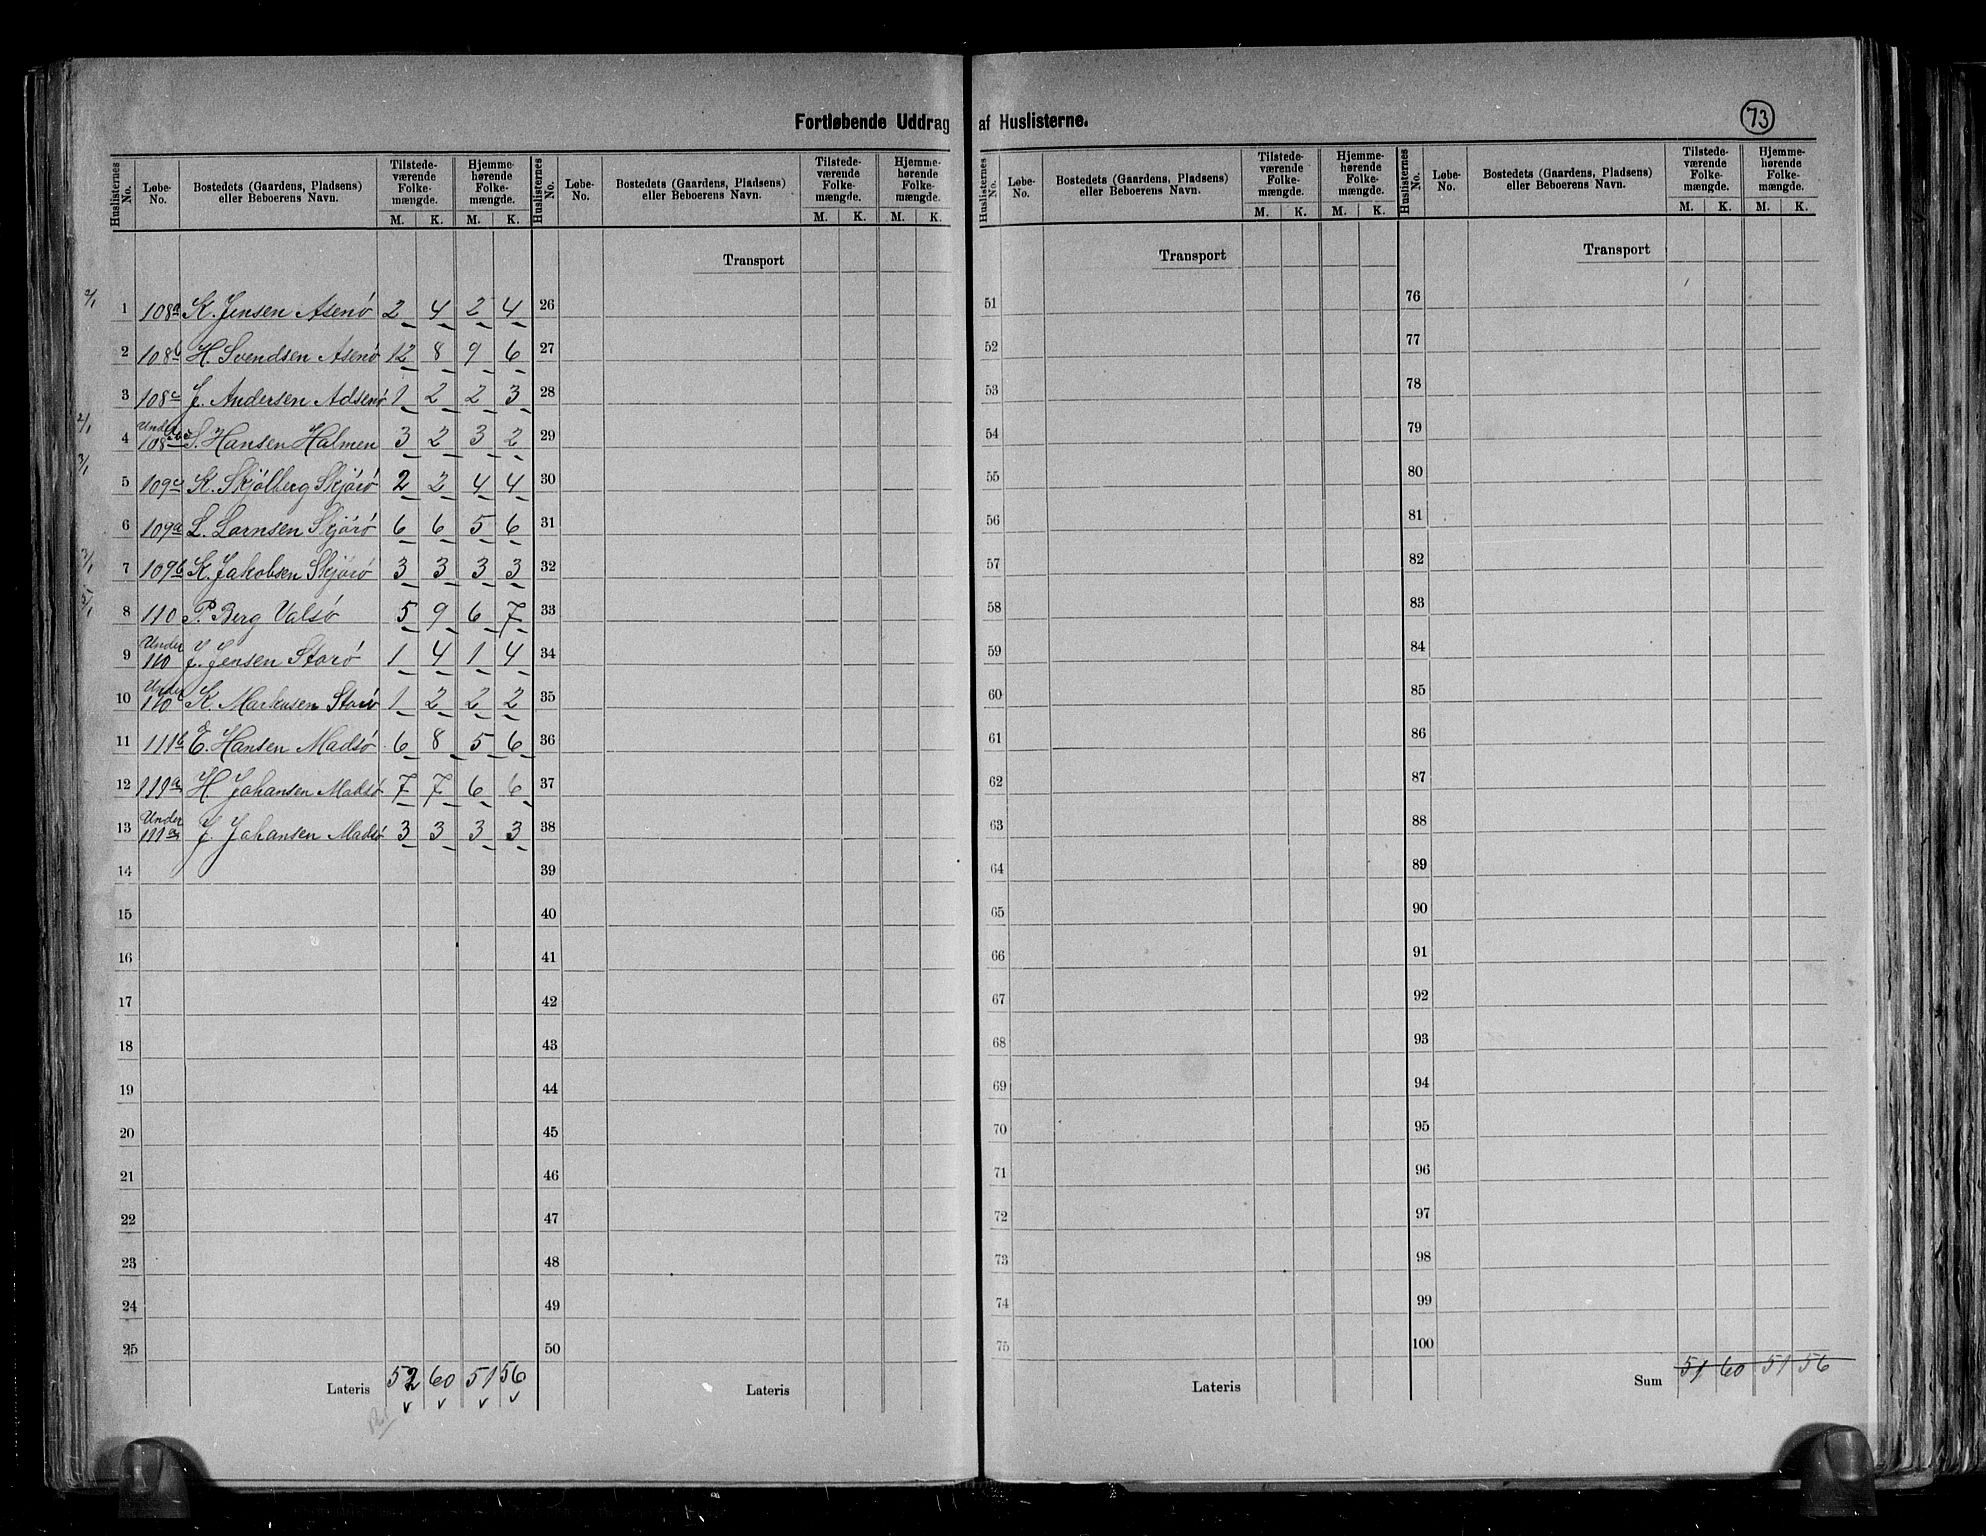 Fortløbende Uddrag af Huslisterne.
73
Huslisternes No. | Løbe-No. | Bostedets (Gaardens, Pladsens) eller Beboerens Navn. | Tilstedeværende Folkemængde. M. K. | Hjemmehørende Folkemængde. M. K.
1 108a K. Jensen Asenö 2 4 2 4
2 108b H. Svendsen Asenö 12 8 9 6
3 108c J. Andersen Adsenö 1 2 2 3
4 Under 108 S. Hansen Halmen 3 2 3 2
5 109c K. Skjölberg Skjörö 2 2 4 4
6 109a L. Larnsen Skjörö 6 6 5 6
7 109b K. Jakobsen Skjörö 3 3 3 3
8 110 P. Berg Valsö 5 9 6 7
9 Under 110 J. Jensen Storö 1 4 1 4
10 Under 110 K. Markusen Storö 1 2 2 2
11 111b E. Hansen Madsö 6 8 5 6
12 111a H Johansen Madsö 7 7 6 6
13 Under 111a J. Johansen Madsö 3 3 3 3
14
15
16
17
18
19
20
21
22
23
24
25
Lateris 52 60 51 56
Huslisternes No. | Løbe-No. | Bostedets (Gaardens, Pladsens) eller Beboerens Navn. | Tilstedeværende Folkemængde. M. K. | Hjemmehørende Folkemængde. M. K.
Transport
26
27
28
29
30
31
32
33
34
35
36
37
38
39
40
41
42
43
44
45
46
47
48
49
50
Lateris
Huslisternes No. | Løbe-No. | Bostedets (Gaardens, Pladsens) eller Beboerens Navn. | Tilstedeværende Folkemængde. M. K. | Hjemmehørende Folkemængde. M. K.
Transport
51
52
53
54
55
56
57
58
59
60
61
62
63
64
65
66
67
68
69
70
71
72
73
74
75
Lateris
Huslisternes No. | Løbe-No. | Bostedets (Gaardens, Pladsens) eller Beboerens Navn. | Tilstedeværende Folkemængde. M. K. | Hjemmehørende Folkemængde. M. K.
Transport
76
77
78
79
80
81
82
83
84
85
86
87
88
89
90
91
92
93
94
95
96
97
98
99
100
Sum 51 60 51 56